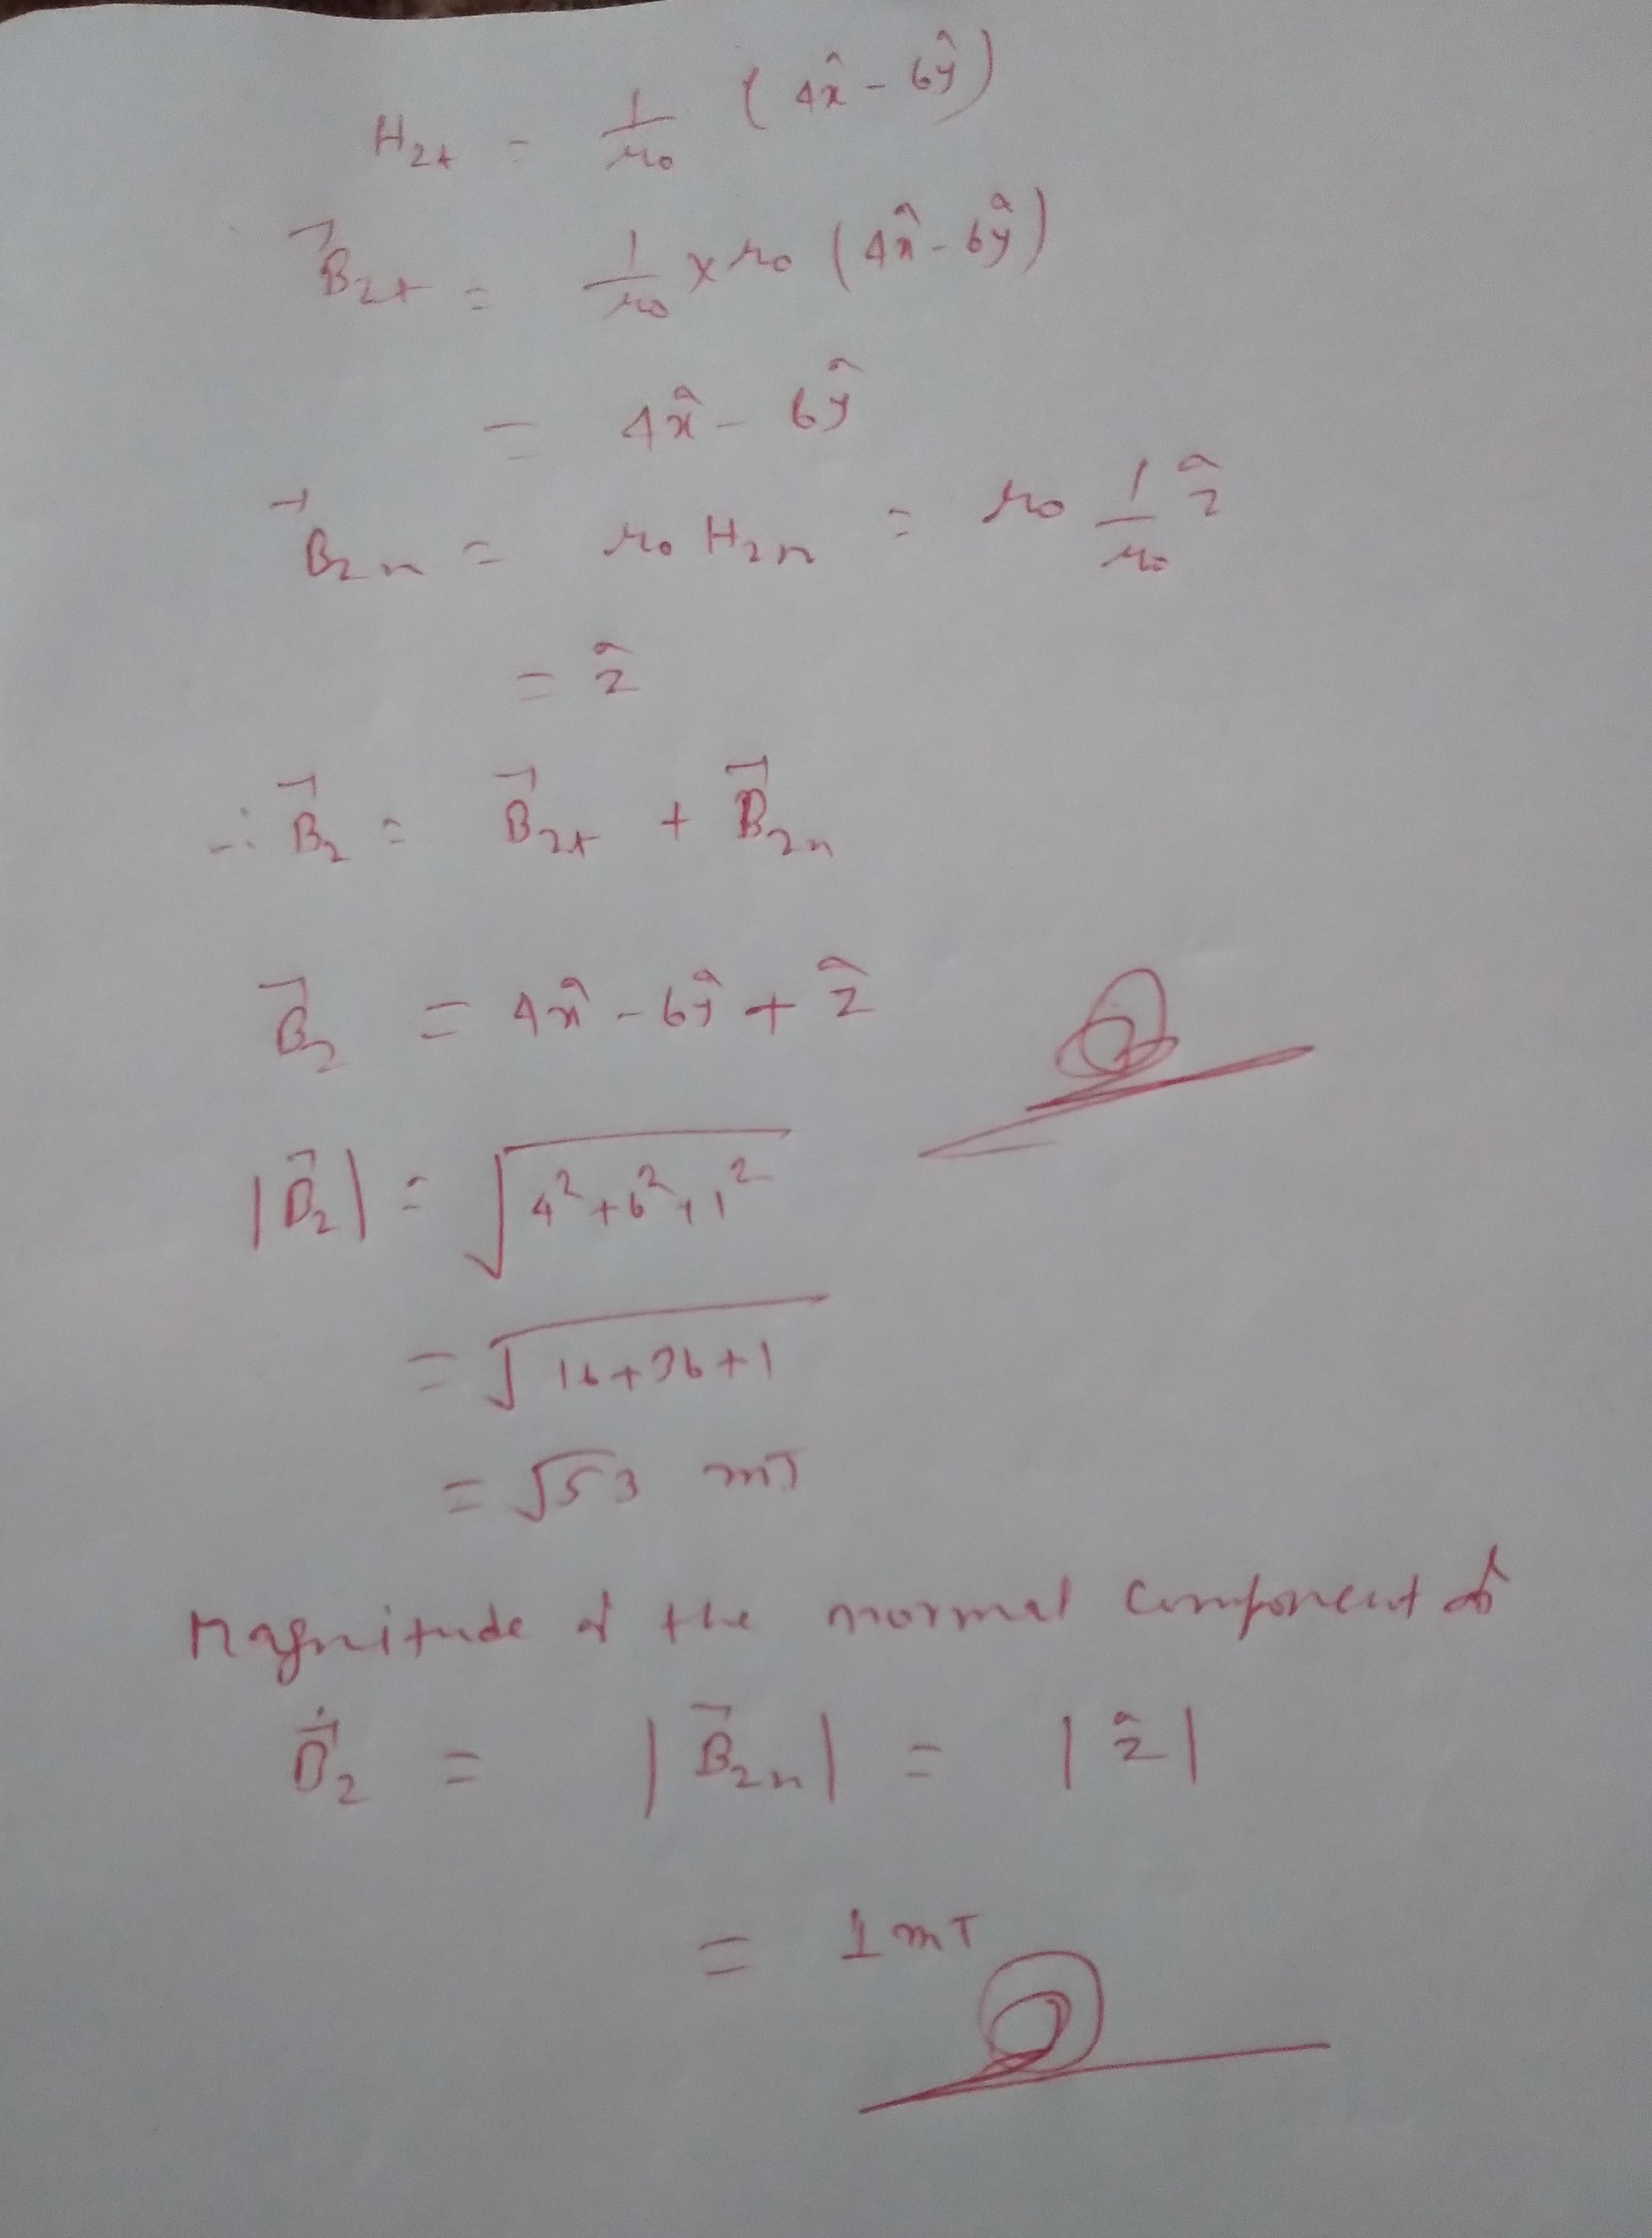 H₂ₜ = 1/μ₀ (4x̂ - 6ŷ)
B⃗₂ₜ = 1/μ₀ × μ₀ (4x̂ - 6ŷ)
= 4x̂ - 6ŷ
B⃗₂ₙ = μ₀ H₂ₙ = μ₀ 1/μ₀ ẑ
= ẑ
∴ B⃗₂ = B⃗₂ₜ + B⃗₂ₙ
B⃗₂ = 4x̂ - 6ŷ + ẑ
|B⃗₂| = √(4² + 6² + 1²)
= √(16 + 36 + 1)
= √53 mT
Magnitude of the normal component of
B⃗₂ = |B⃗₂ₙ| = |ẑ|
= 1 mT